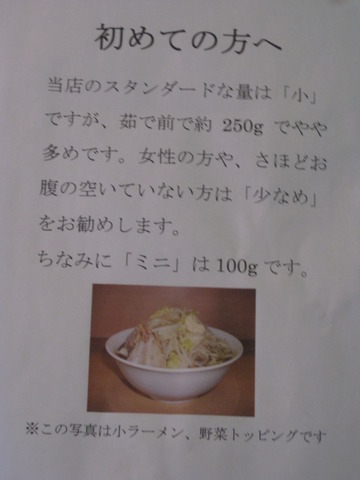 初めての方へ
当店のスタンダードな量は「小」
ですが、茹で前で約 250g でやや
多めです。女性の方や、さほどお
腹の空いていない方は「少なめ」
をお勧めします。
ちなみに「ミニ」は100g です。
※この写真は小ラーメン、野菜トッピングです